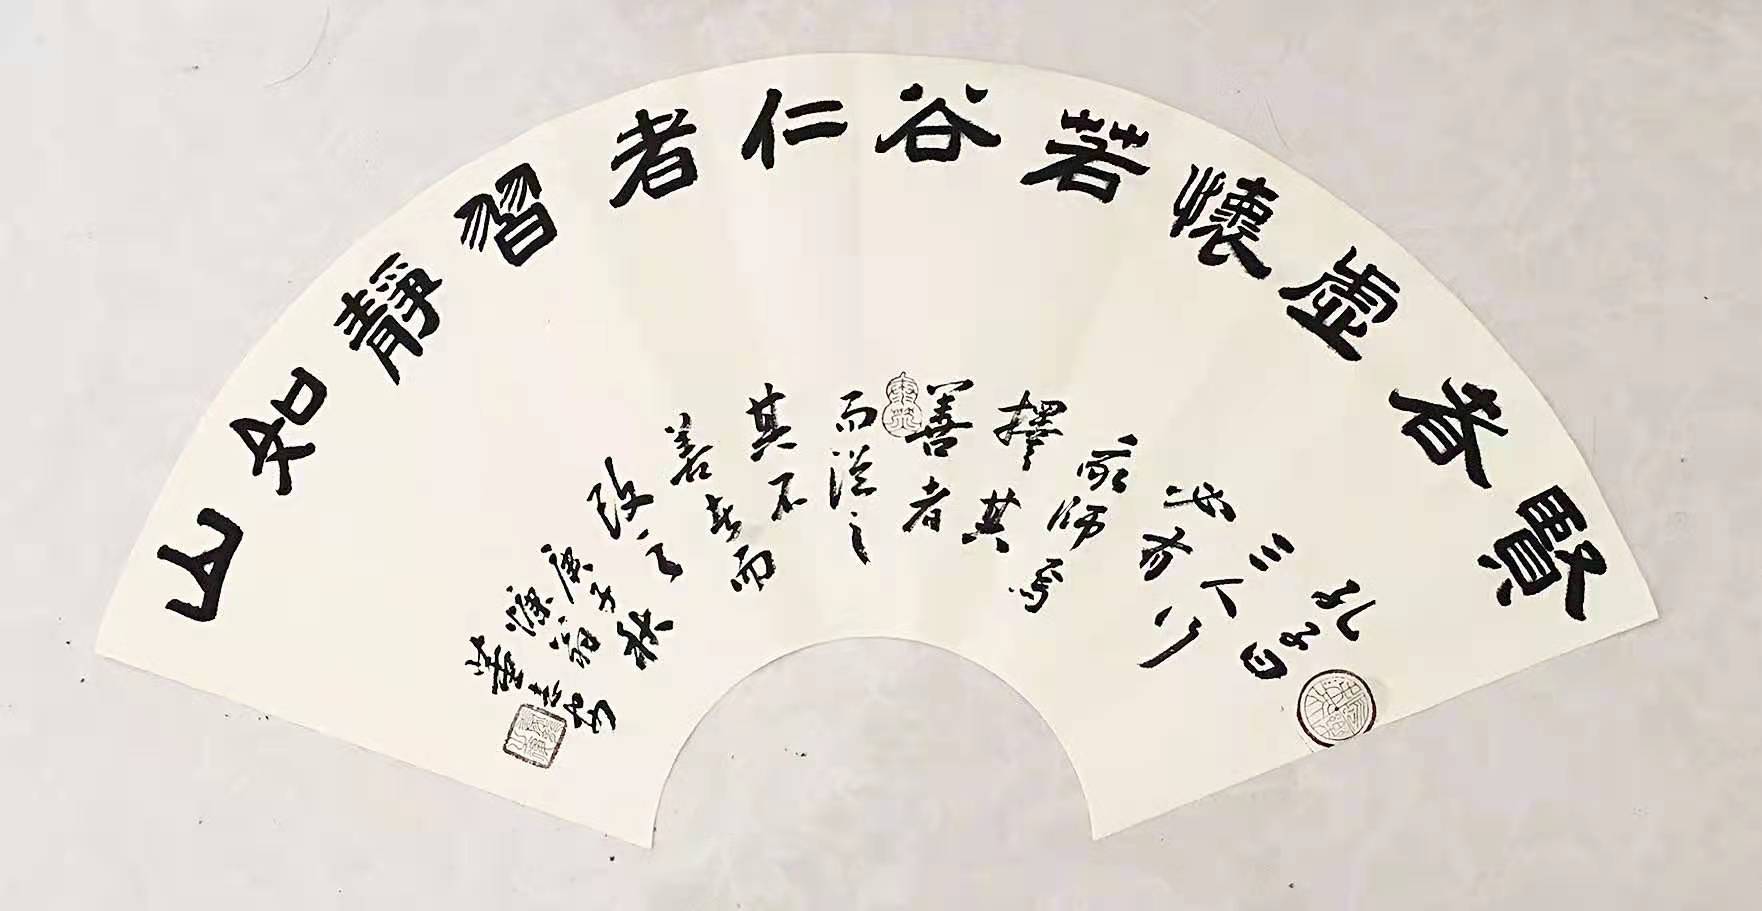 賢者虛懷若谷仁者習靜知山
孔子曰
三人行
必有
我師焉
擇其
善者
而從之
其不
善者而
改之
庚子秋
濂翁